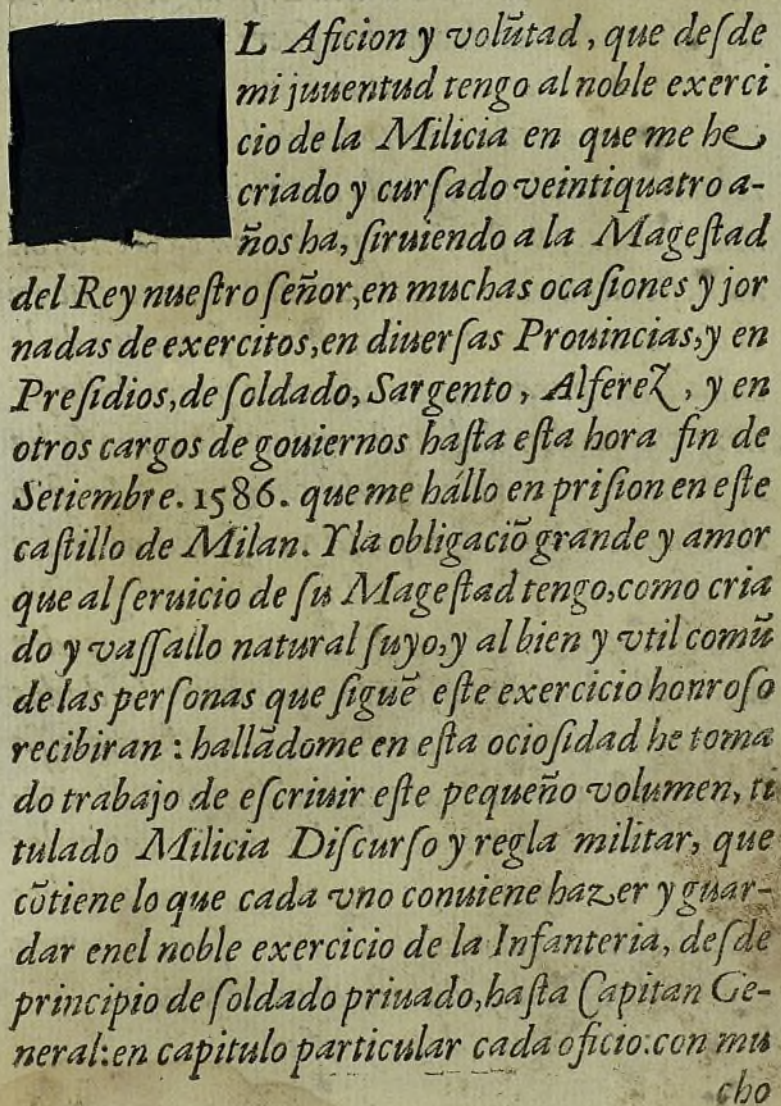 L Aficion y volũtad, que deſde
mi juuentud tengo al noble exerci
cio de la Milicia en que me he
criado y curſado veintiquatro a-
ños ha, ſiruiendo a la Mageſtad
del Rey nueſtro ſeñor, en muchas ocaſiones y jor
nadas de exercitos, en diuerſas Prouincias, y en
Preſidios, de ſoldado, Sargento, Alferez, y en
otros cargos de gouiernos haſta eſta hora fin de
Setiembre. 1586. que me hállo en priſion en eſte
caſtillo de Milan. Y la obligaciõ grande y amor
que al ſeruicio de ſu Mageſtad tengo, como cria
do y vaſſallo natural ſuyo, y al bien y vtil comũ
de las perſonas que ſiguẽ eſte exercicio honroſo
recibiran : hallãdome en eſta ocioſidad he toma
do trabajo de eſcriuir eſte pequeño volumen, ti
tulado Milicia Diſcurſo y regla militar, que
cõtiene lo que cada vno conuiene hazer y guar-
dar enel noble exercicio de la Infanteria, deſde
principio de ſoldado priuado, haſta Capitan Ge-
neral: en capitulo particular cada oficio: con mu
cho